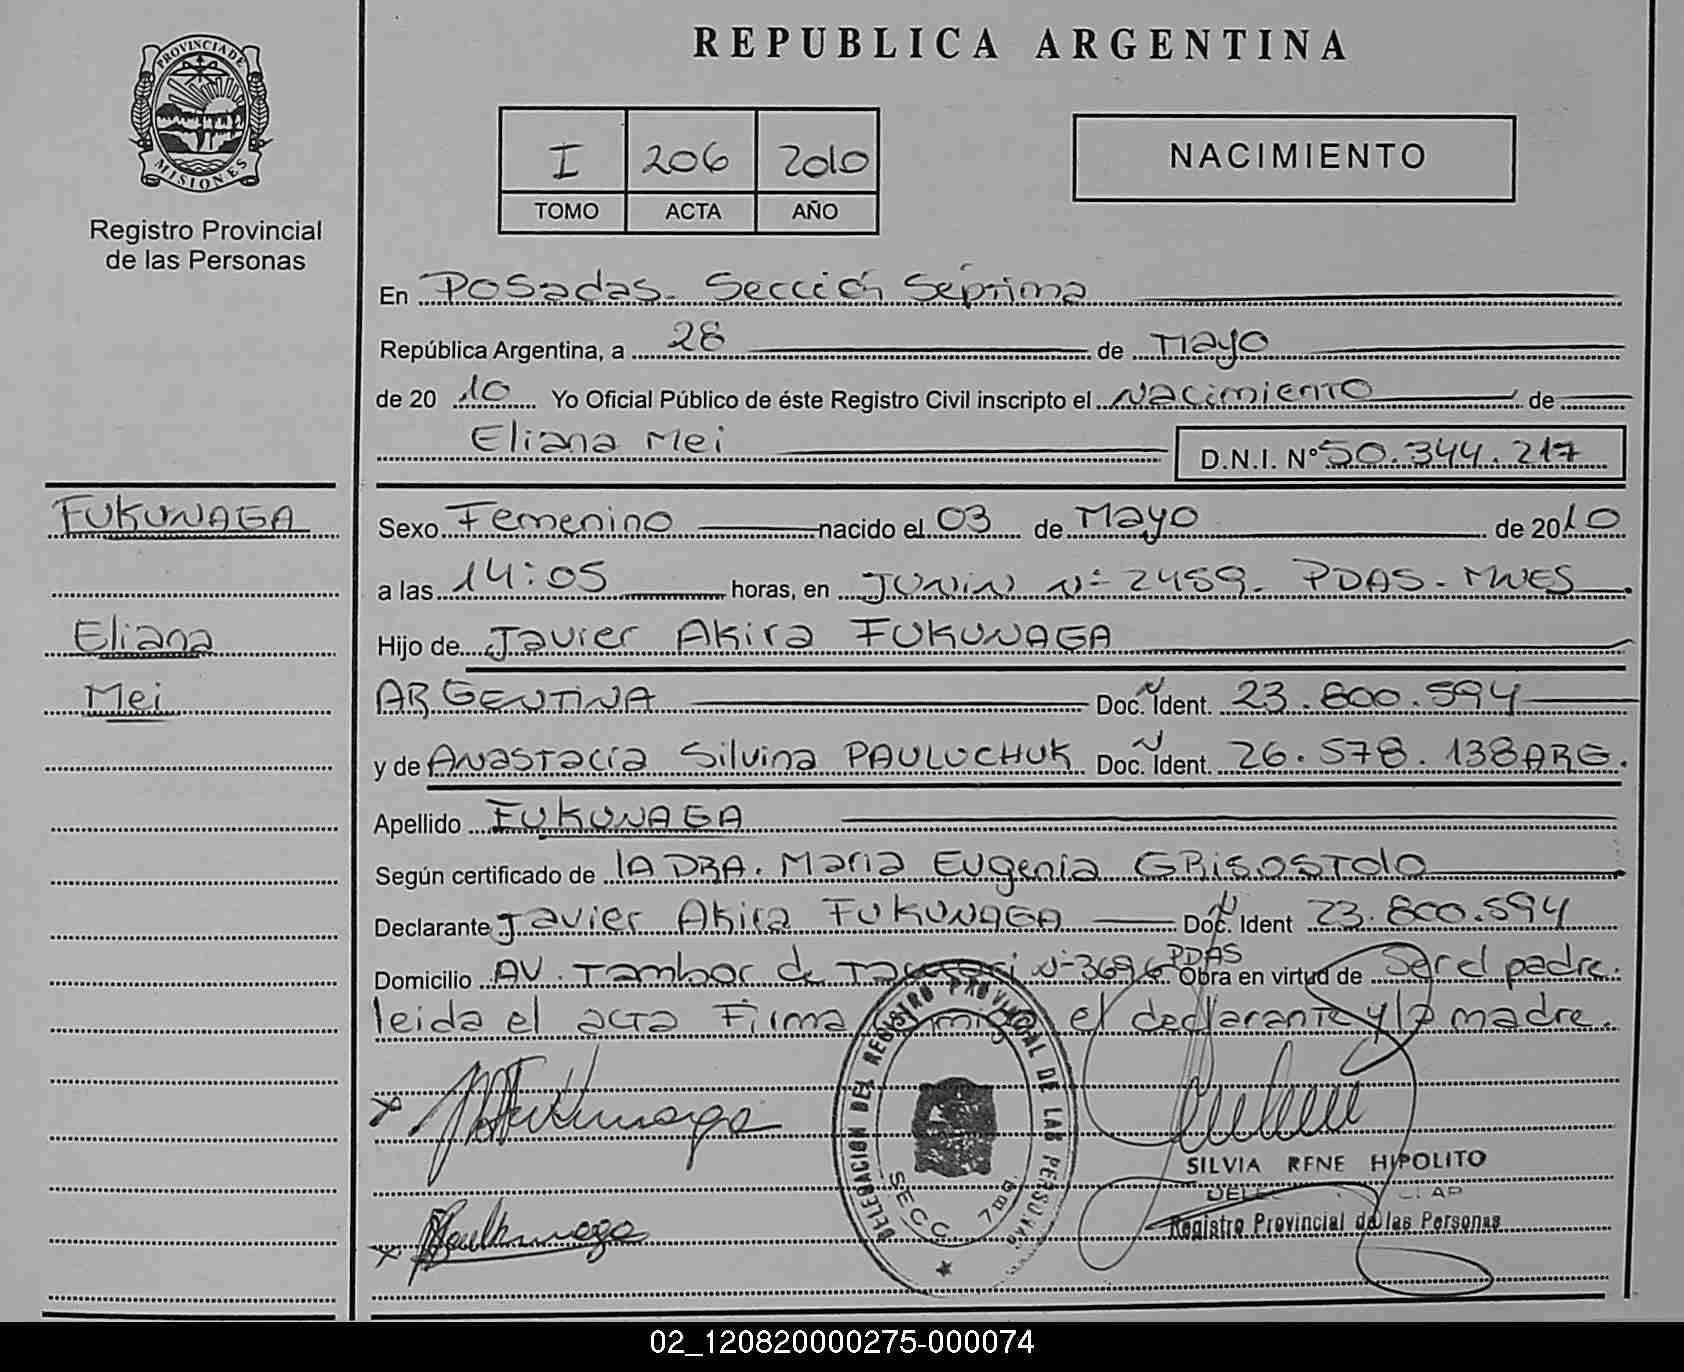 PROVINCIA DE
MISIONES
Registro Provincial
de las Personas
REPUBLICA ARGENTINA
I 206 2010
TOMO ACTA AÑO
NACIMIENTO
En Posadas- Sección Séptima
República Argentina, a 28 de Mayo
de 20 10 Yo Oficial Público de éste Registro Civil inscripto el Nacimiento de
Eliana Mei D.N.I. N° 50.344.217
FUKUNAGA
Eliana
Mei
Sexo Femenino nacido el 03 de Mayo de 2010
a las 14:05 horas, en JUNIN Nº 2459- PDAS- MNES
Hijo de Javier Akira FUKUNAGA
ARGENTINA Doc. Ident. 23.800.594
y de Anastacia Silvina PAULUCHUK Doc. Ident. 26.578.138 ARG.
Apellido FUKUNAGA
Según certificado de lA DRA. Maria Eugenia GRISOSTOLO
Declarante Javier Akira FUKUNAGA Doc. Ident 23.800.594
Domicilio AV. Tambor de Tacuari Nº 3696 PDAS Obra en virtud de Ser el padre.
leida el acta Firma conmigo el declarante y la madre.
DELEGACION DEL REGISTRO PROVINCIAL DE LAS PERSONAS
SECC. 7ma
SILVIA RENE HIPOLITO
Registro Provincial de las Personas
02_120820000275-000074